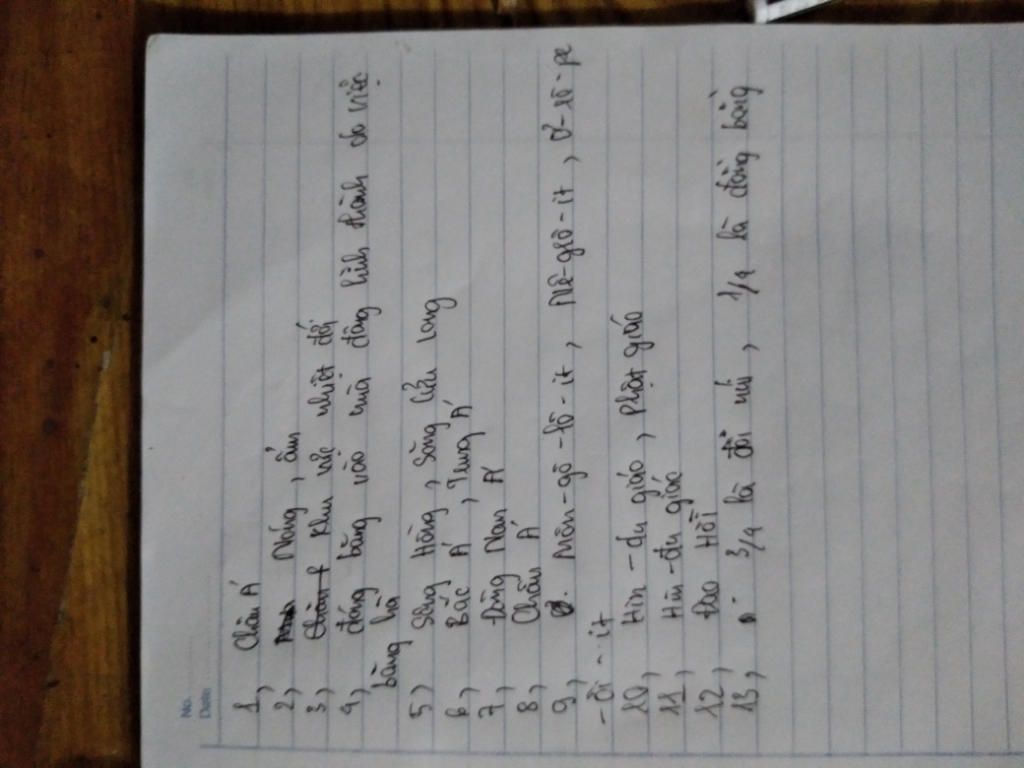 No.
Date
1, Châu Á
2, Nóng, ẩm
3, Khu vực nhiệt đới
4, đóng băng vào mùa đông hình thành do việc
băng hà
5, Sông Hồng, Sông Cửu Long
6, Bắc Á, Trung Á
7, Đông Nam Á
8, Châu Á
9, Môn-gô-lô-it, Nê-grô-it, Ơ-rô-pê
-ôi-it
10, Hin-đu giáo, Phật giáo
11, Hin-đu giáo
12, Đạo Hồi
13, 3/4 là đồi núi, 1/4 là đồng bằng